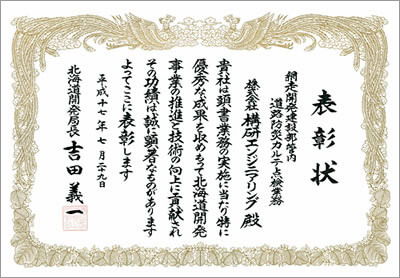 表彰状
網走開発建設部管内
道路防災カルテ点検業務
株式会社 構研エンジニアリング 殿
貴社は頭書業務の実施に当たり特に
優秀な成果を収めもって北海道開発
事業の推進と技術の向上に貢献され
その功績は誠に顕著なものがあります
よってここに表彰します
平成十七年七月二十九日
北海道開発局長 吉田義一